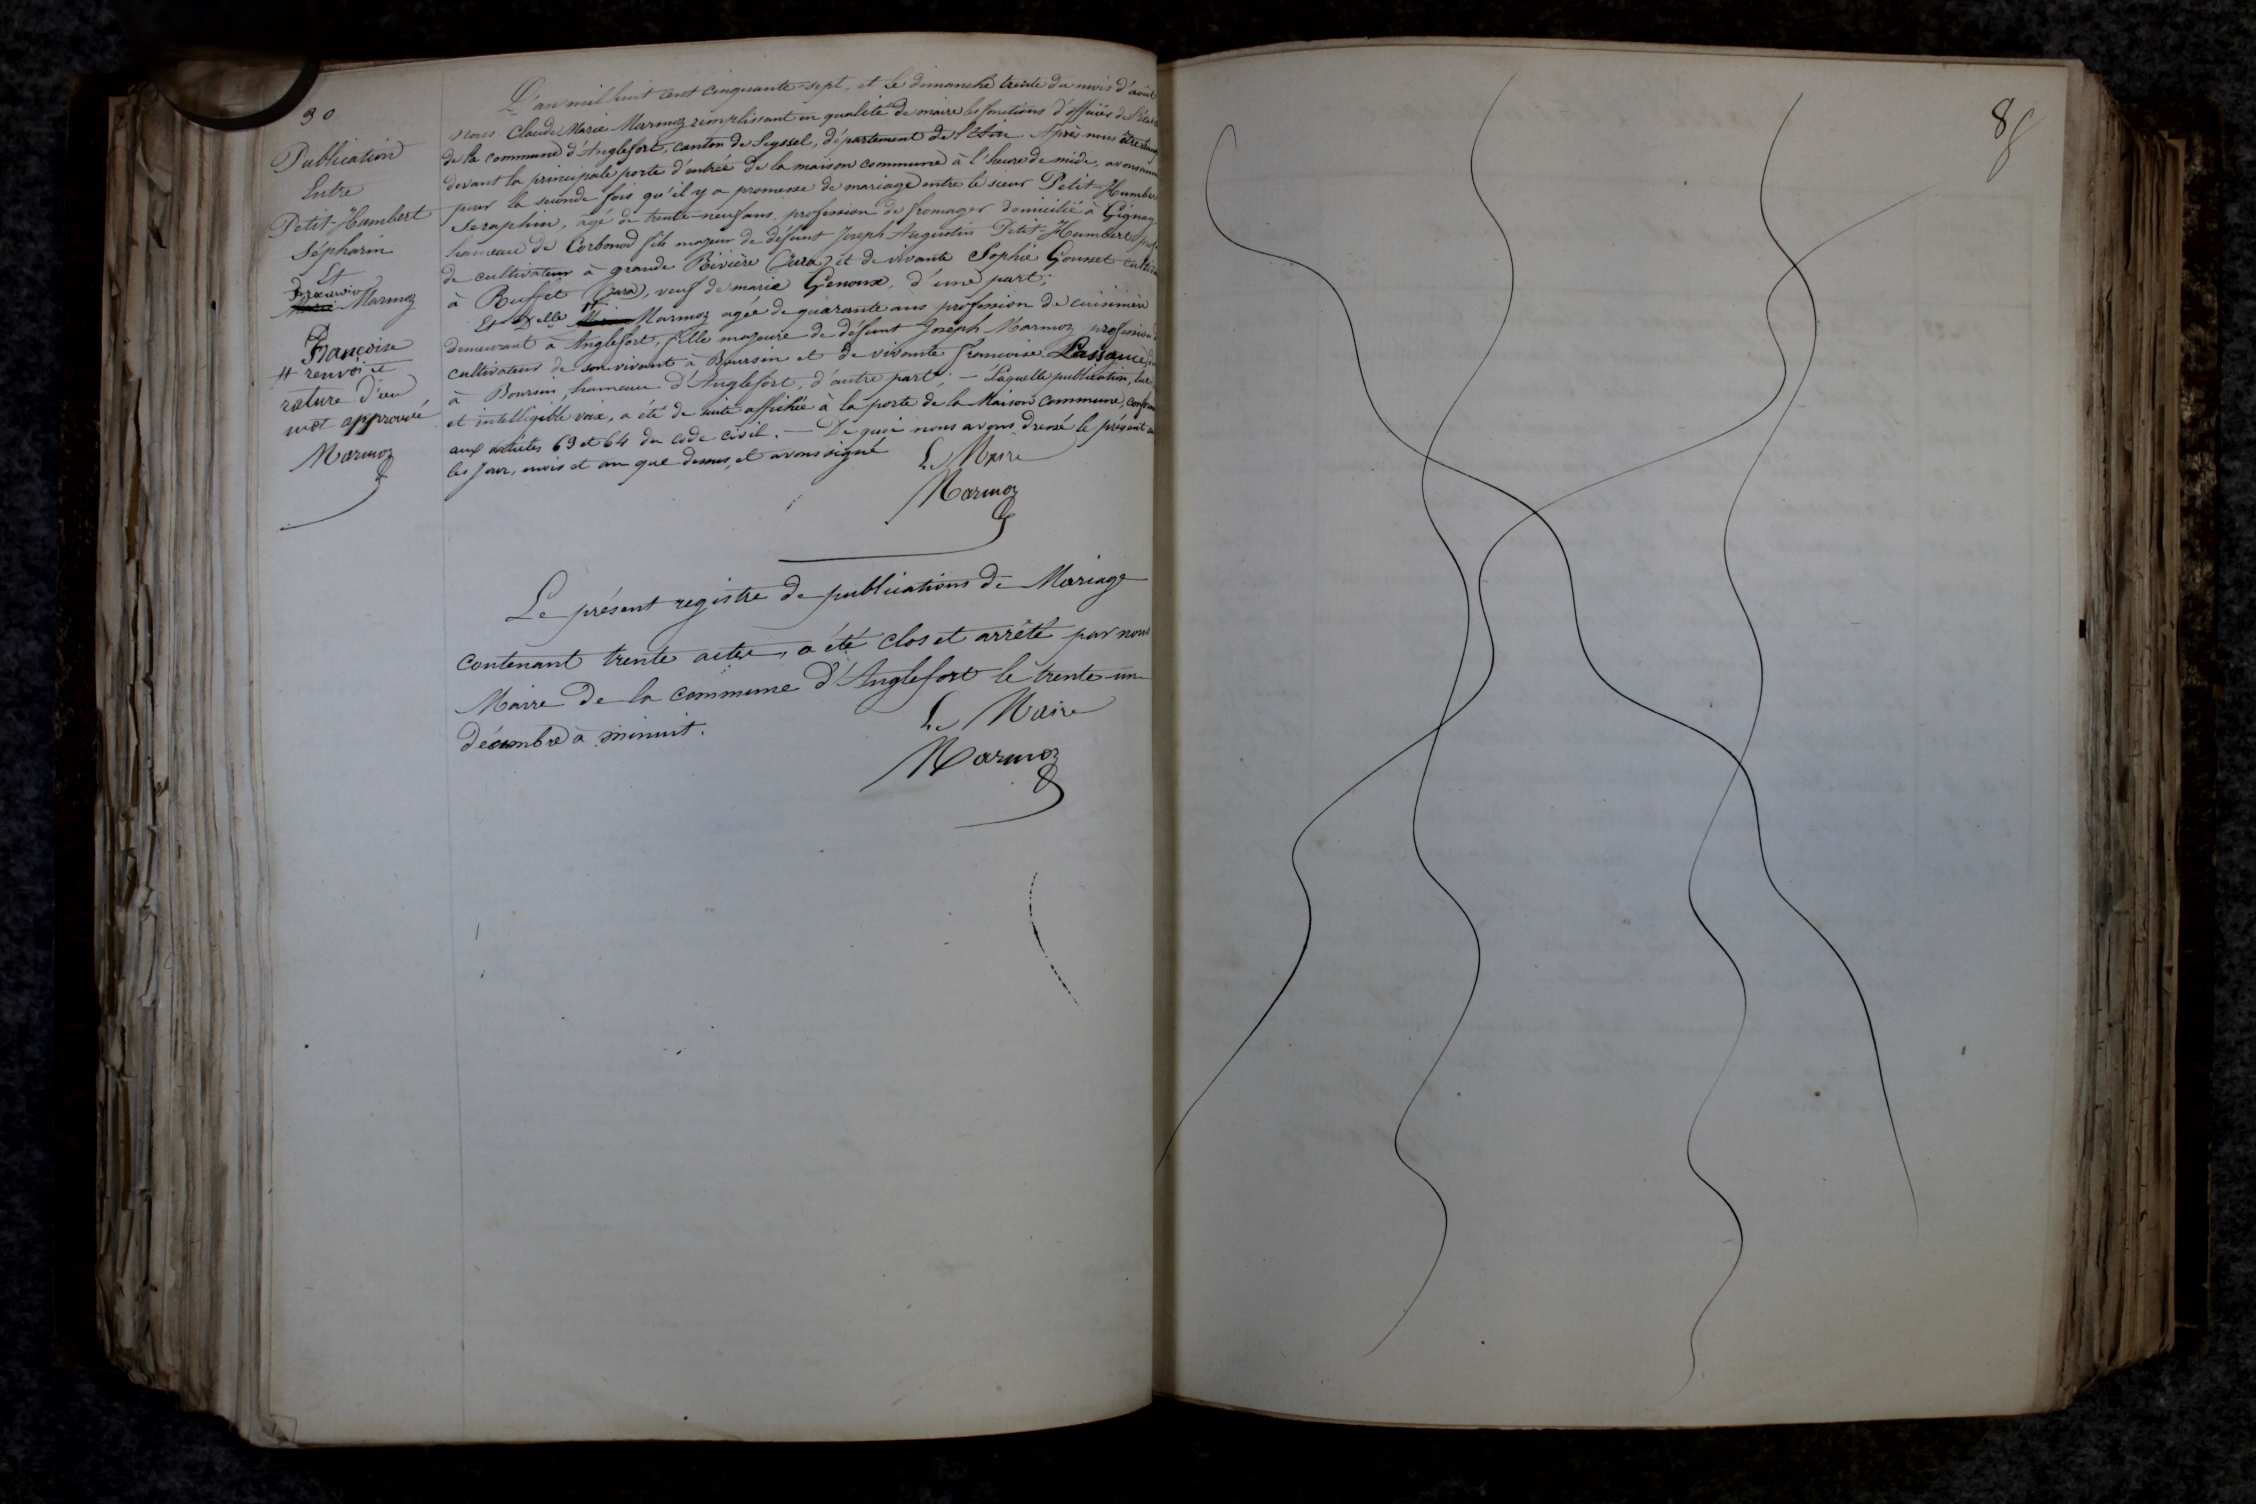 30
Publication
Entre
Petit-Humbert
Sépharin
Et
Marmoz
Françoise
# renvoi et
rature d'un
mot approuvé
Marmoz
L'an mil huit cent cinquante-sept, et le dimanche trente du mois d'août
nous Claude Marie Marmoz remplissant en qualité de maire les fonctions d'officier de l'état
de la commune d'Anglefort, canton de Seyssel, département de l'Ain. Après nous être
devant la principale porte d'entrée de la maison commune à l'heure de midi, avons
pour la seconde fois qu'il y a promesse de mariage entre le sieur Petit-Humbert
Seraphin, agé de trente-neuf ans, profession de fromager domicilié à Gignez
hameau de Corbonod fils majeur de défunt Joseph Augustin Petit-Humbert
de cultivateur à grande Rivière (Jura) et de vivante Sophie Gousset
à Ruffet (Jura), veuf de marie Genoux, d'une part;
Et Delle # Marmoz agée de quarante ans profession de cuisinière
demeurant à Anglefort, fille majeure de défunt Joseph Marmoz profession
cultivateur de son vivant à Boursin et de vivante francoise Lassauce
à Boursin, hameau d'Anglefort, d'autre part; — Laquelle publication, lue
et intelligible voix, a été de suite affichée à la porte de la Maison commune,
aux articles 63 et 64 du code civil. — De quoi nous avons dressé le présent
les jour, mois et an que dessus, et avons signé
Le Maire
Marmoz
Le présent registre de publications de Mariage
contenant trente actes, a été clos et arrêté par nous
Maire de la commune d'Anglefort le trente-un
décembre à minuit.
Le Maire
Marmoz
8